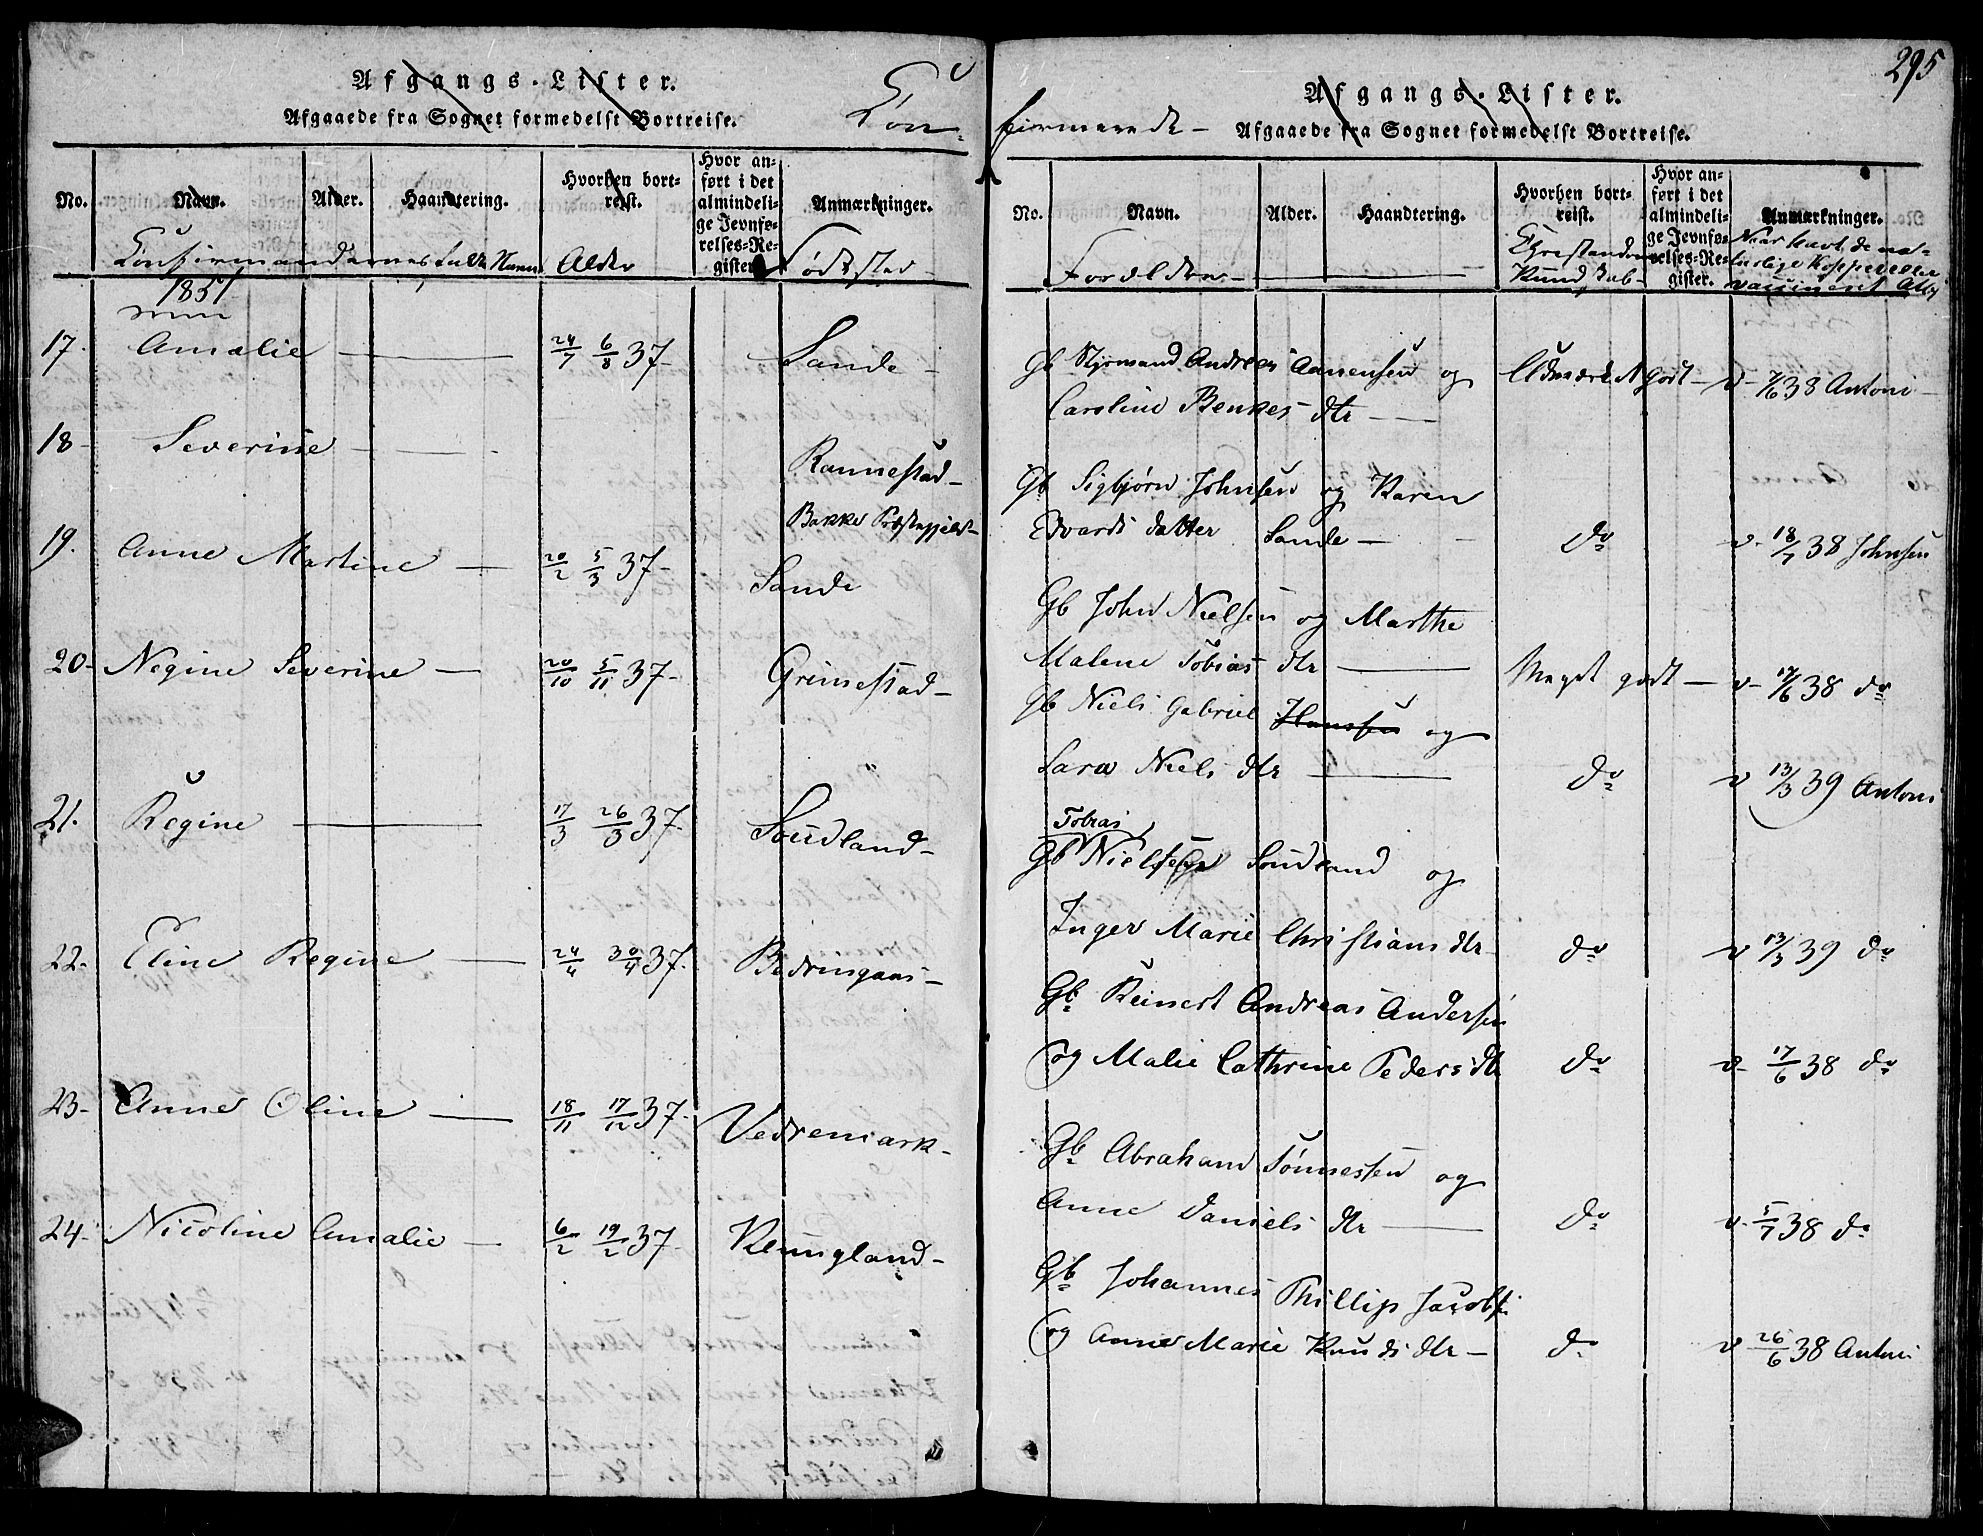 Afgangs-Lister.
Afgaaede fra Sognet formedelst Bortreise.
Con-
No.
Navn.
Alder.
Haandtering.
Hvorhen bortreist.
Hvor anført i det almindelige Jevnførelses-Register.
Anmærkninger.
Confirmandernes fulde Navn
Alder
Fødested
1851
17. Amalie 24/7 6/8 37- Sande-
18- Severine Rannestad-
Bakke Præstegjeld-
19. Anne Martine 20/2 5/3 37- Sande
20- Regine Severine 20/10 5/11 37- Grimestad-
21. Regine 17/3 26/3 37. Soudland-
22- Eline Regine 24/4 30/4 37. Bedringaas-
23- Anne Oline 18/11 17/12 37- Vedremark-
24- Nicoline Amalie 6/2 19/2 37- Klungland-
295
firmerede-
Afgangs-Lister.
Afgaaede fra Sognet formedelst Bortreise.
No.
Navn.
Alder.
Haandtering.
Hvorhen bortreist.
Hvor anført i det almindelige Jevnførelses-Register.
Anmærkninger.
Forældre
Christendoms
Kundskab-
Naar havt de naturlige Kopper eller
vaccineret Att.
Gb Styrmand Andreas Aanensen og Udmærket godt- v- 7/6 38 Antoni-
Caroline Bentes dtr
Gb Sigbjørn Johnsen og Karen
Edvards datter Sande- do v- 18/7 38 Johnsen
Gb John Nielsen og Marthe
Malene Tobias dtr Meget godt- v- 17/6 38 do
Gb Niels Gabriel Hansen og
Sara Niels dtr do v 13/3 39 Antoni
Tobias
Gb Nielsen Soudland og
Inger Marie Christians dtr- do v 13/3 39 do
Gb. Reinert Andreas Andersen
og Malie Cathrine Peders dtr do v- 17/6 38 do
Gb Abraham Tønnessen og
Anne Daniels dtr do v- 5/7 38 do
Gb Johannes Phillip Jacobs.
og Anne Marie Knuds dtr- do v 26/6 38 Antoni